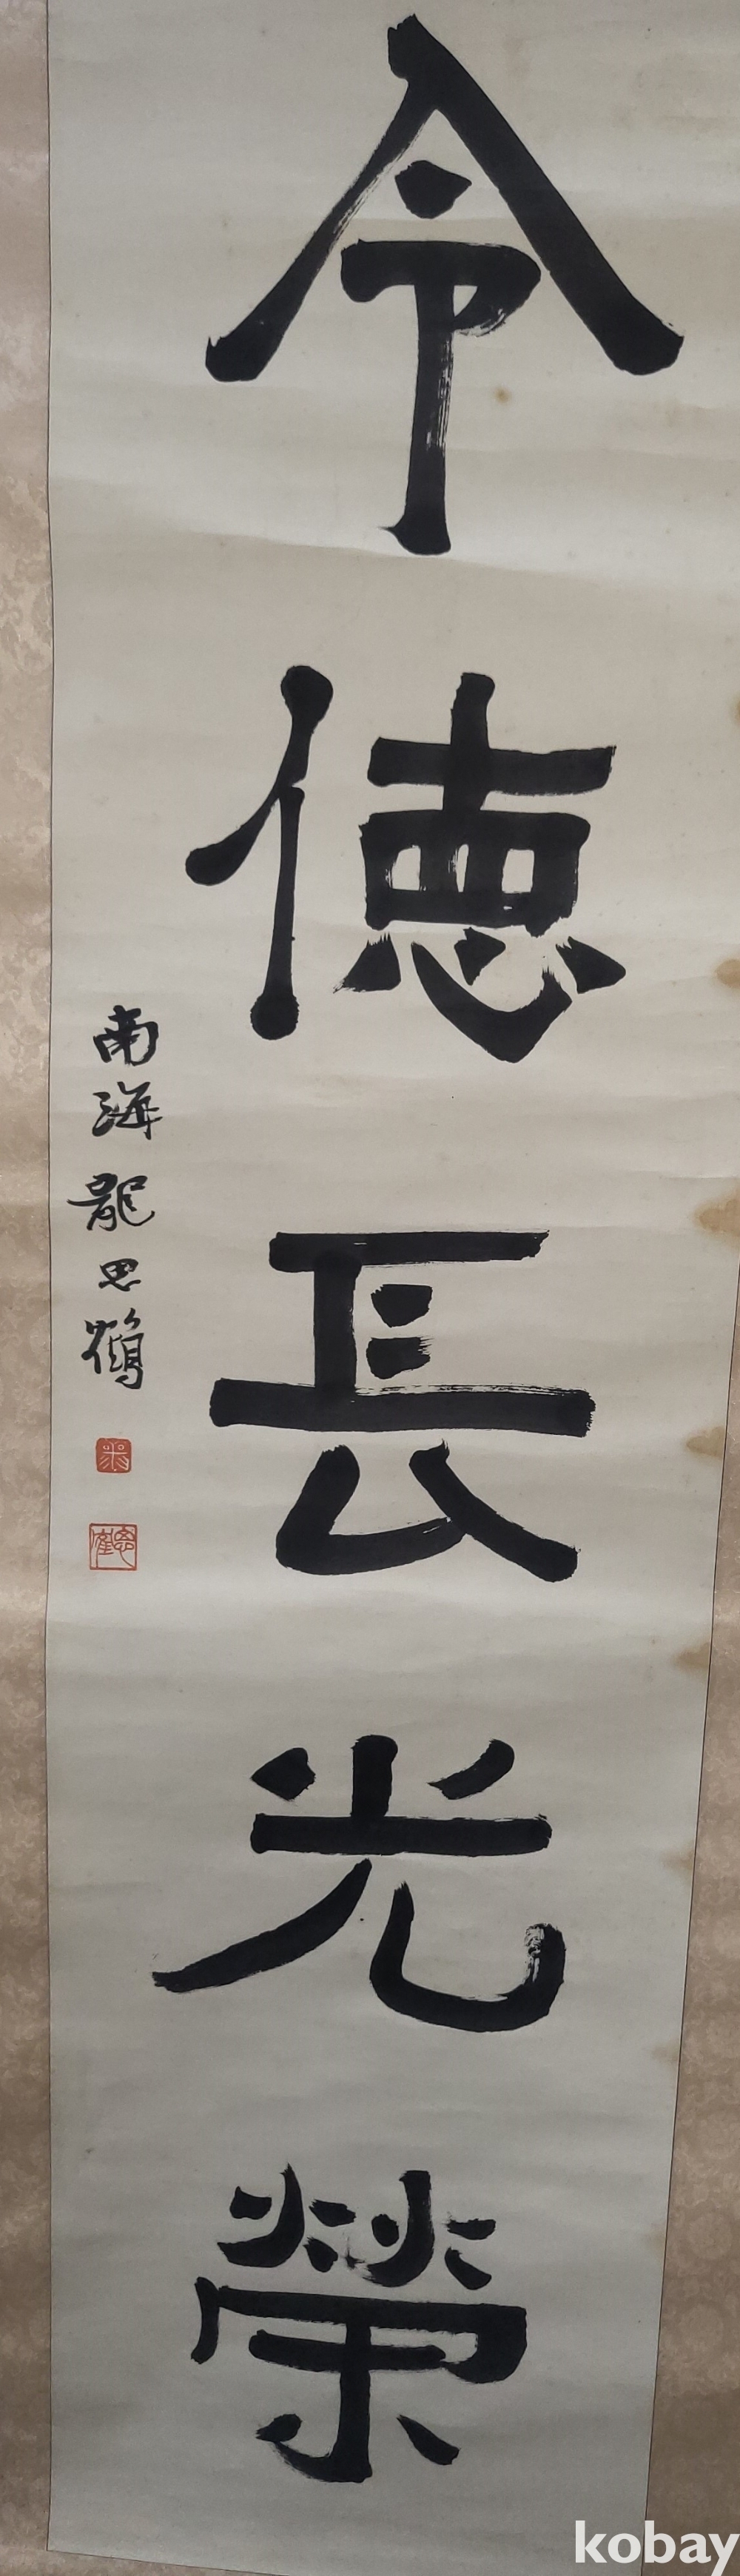 令德長光榮
南海龍思鶴
思鶴
kobay